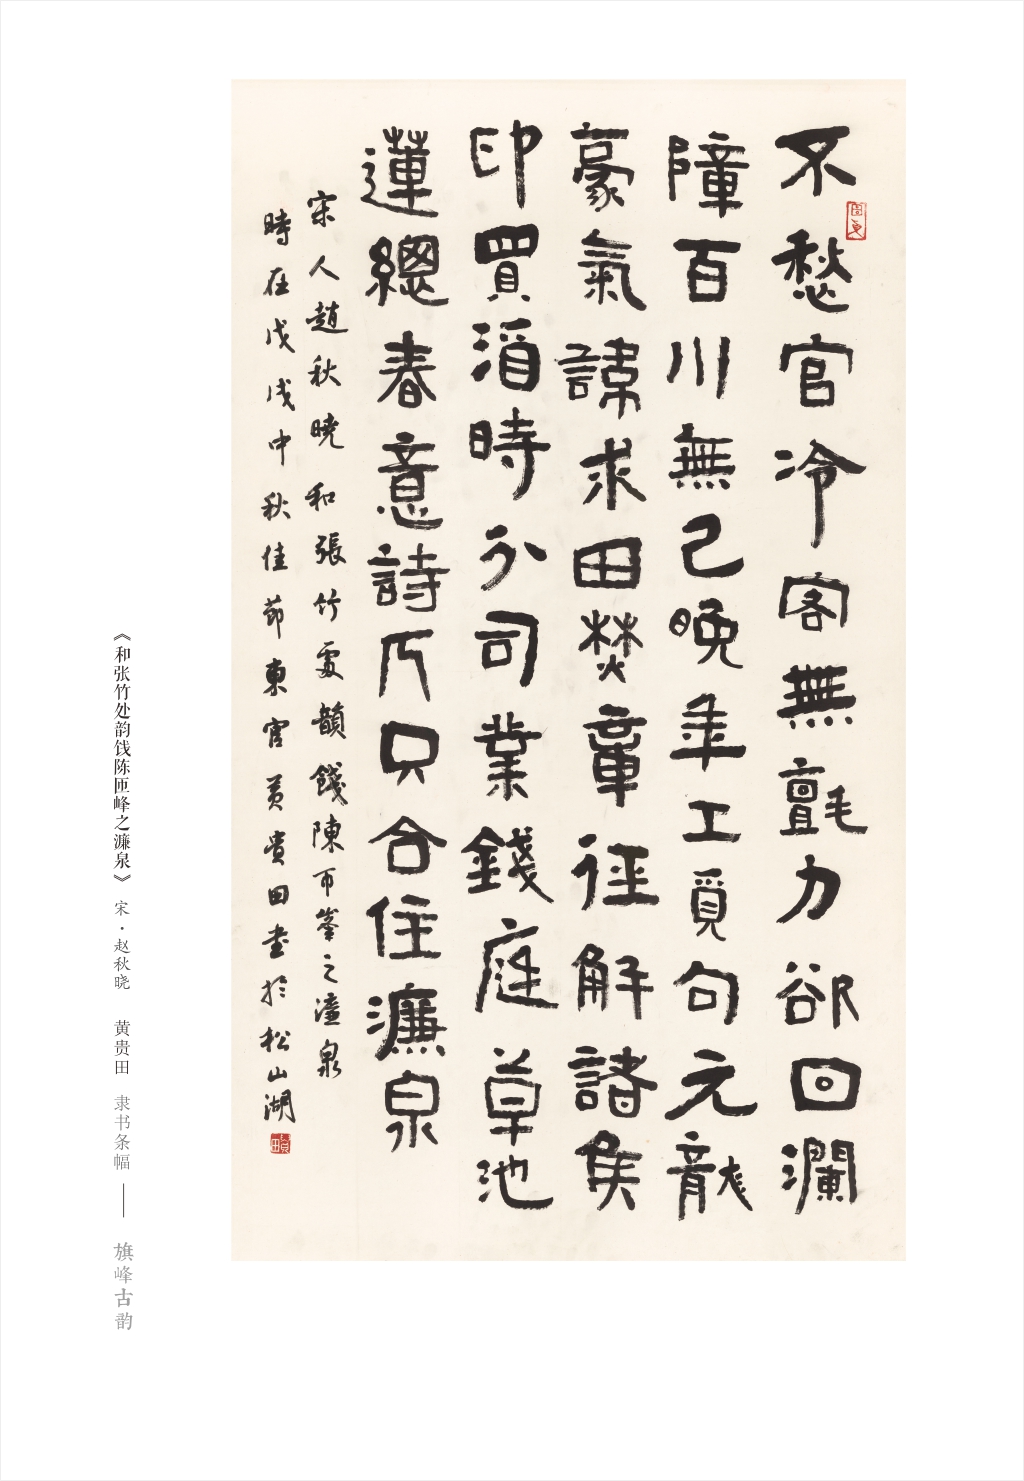 不愁官冷客無氈力卻回瀾
障百川無已晚年工覓句元龍
豪氣諱求田焚章徑解諸侯
印買酒時分司業錢庭草池
蓮總春意詩人只合住濂泉
宋人趙秋曉和張竹處韻餞陳帀峯之濂泉
時在戊戌中秋佳節東官黃貴田書於松山湖
《和张竹处韵饯陈匝峰之濂泉》 宋·赵秋晓 黄贵田 隶书条幅 —— 旗峰古韵